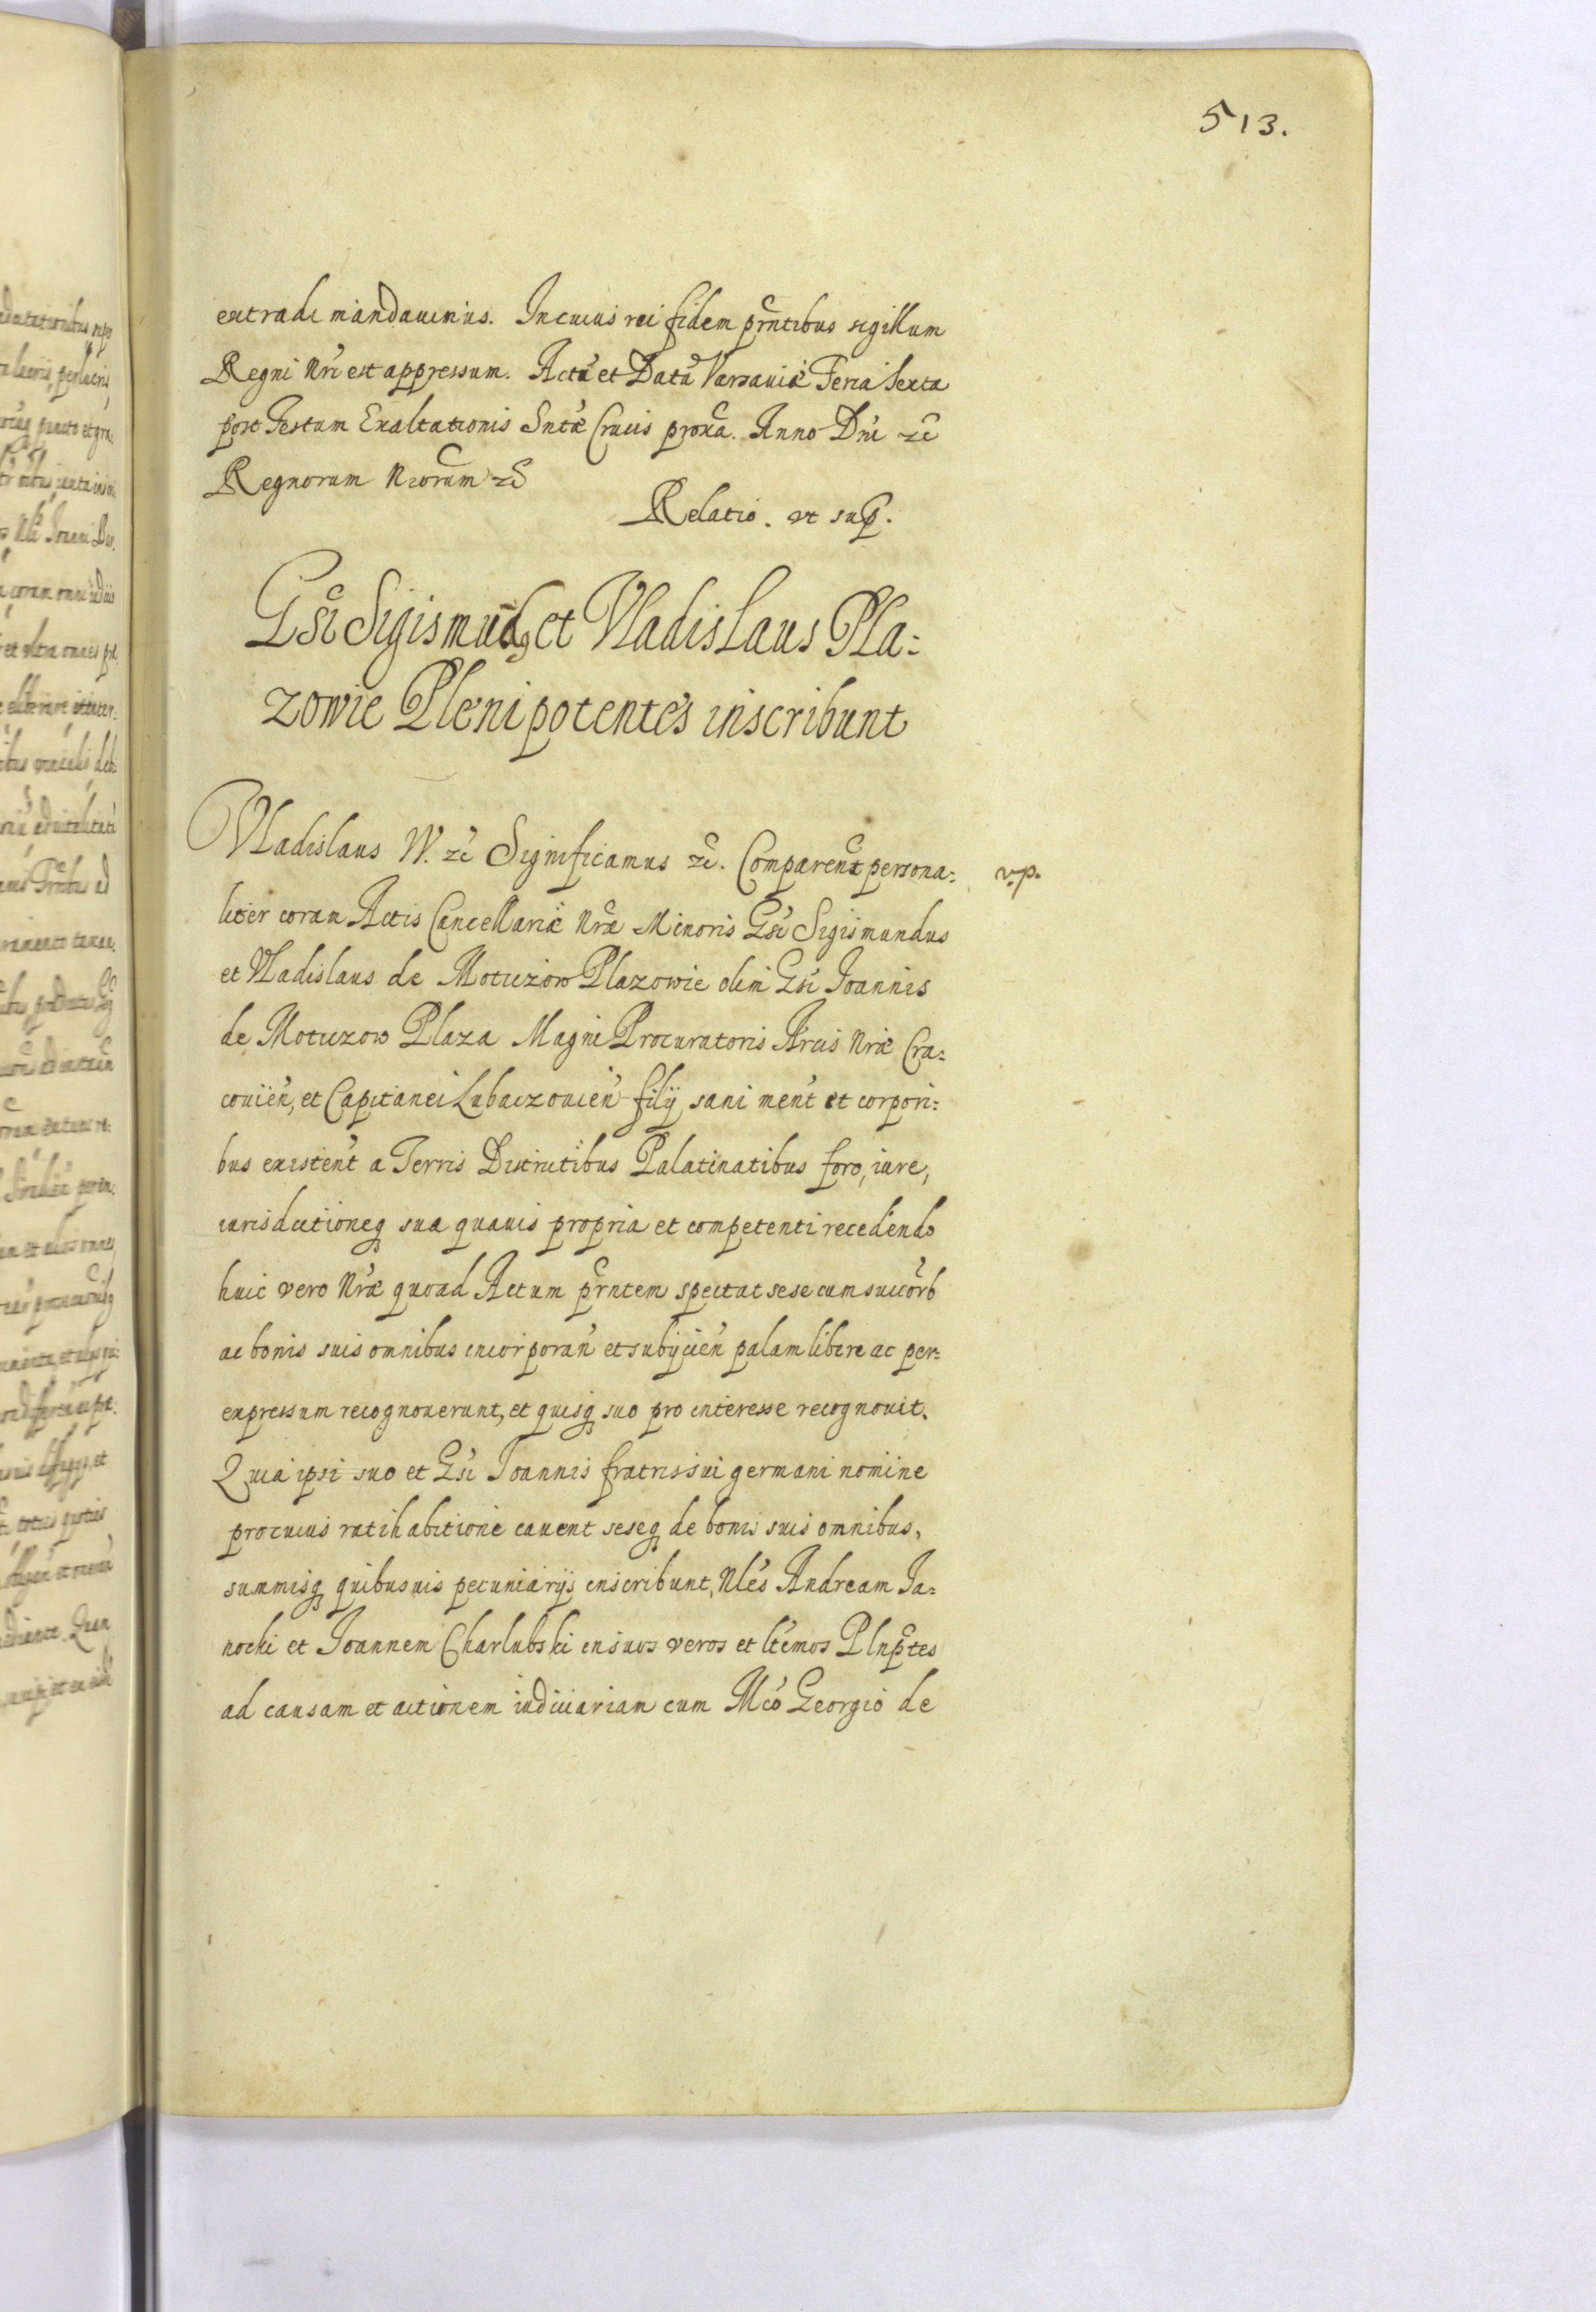 513.
extradi mandauimus. In cuius rei fidem pr̃ntibus sigillum
Regni Nri est appressum. Actũ et Datũ Varsauiæ Feria Sexta
post Festum Exaltationis Sntæ Crucis proxa. Anno Dni zc
Regnorum Nrorum zc
Relatio. vt sup.
Gsi Sigismudq et Vladislaus Pla:
zowie Plenipotentes inscribunt
Vladislaus IV. zc Significamus zc. Comparent persona:
v.p.
liter coram Actis Cancellariæ Nræ Minoris Gsi Sigismundus
et Vladislaus de Motuzow Plazowie olim Gsi Joannis
de Motuzow Plaza Magni Procuratoris Arcis Nræ Cra:
couien, et Capitanei Lubaczouien filij sani ment et corpori:
bus existent a Terris Districtibus Palatinatibus foro, iure,
iurisdictioneq sua quauis propria et competenti recedendo
huic vero Nræ quoad Actum prntem spectat sese cum succorb
ac bonis suis omnibus incorporan et subijcien palam libere ac per:
expressum recognouerunt, et quisq suo pro interesse recognouit.
Quia ipsi suo et Gsi Joannis fratris sui germani nomine
pro cuius ratihabitione cauent seseq de bonis suis omnibus,
summisq quibusuis pecuniarijs inscribunt, Nles Andream Ja:
nocki et Joannem Charlubski in suos veros et ltimos Plnptes
ad causam et actionem iudiciariam cum Mco Georgio de